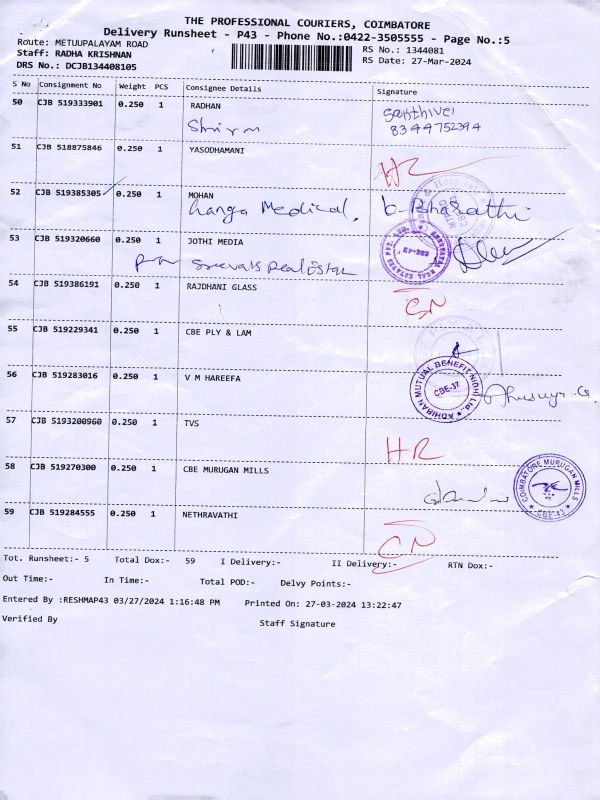 THE PROFESSIONAL COURIERS, COIMBATORE
Delivery Runsheet - P43 - Phone No.:0422-3505555 - Page No.:5
Route: METUUPALAYAM ROAD
RS No.: 1344081
Staff: RADHA KRISHNAN
RS Date: 27-Mar-2024
DRS No.: DCJB134408105
S No Consignment No Weight PCS Consignee Details Signature
50 CJB 519333901 0.250 1 RADHAN
8344752394
51 CJB 518875846 0.250 1 YASODHAMANI
HR
52 CJB 519385305 0.250 1 MOHAN
Ganga Medical, b-Bharathi
53 CJB 519320660 0.250 1 JOTHI MEDIA
54 CJB 519386191 0.250 1 RAJDHANI GLASS
CN
55 CJB 519229341 0.250 1 CBE PLY & LAM
56 CJB 519283016 0.250 1 V M HAREEFA
ADHIRAN MUTUAL BENEFIT NIDHI Ltd.
CBE-37
57 CJB 5193200960 0.250 1 TVS
HR
58 CJB 519270300 0.250 1 CBE MURUGAN MILLS
COIMBATORE MURUGAN MILLS
CBE-43
59 CJB 519284555 0.250 1 NETHRAVATHI
CN
Tot. Runsheet:- 5 Total Dox:- 59 I Delivery:- II Delivery:- RTN Dox:-
Out Time:- In Time:- Total POD:- Delvy Points:-
Entered By :RESHMAP43 03/27/2024 1:16:48 PM Printed On: 27-03-2024 13:22:47
Verified By Staff Signature